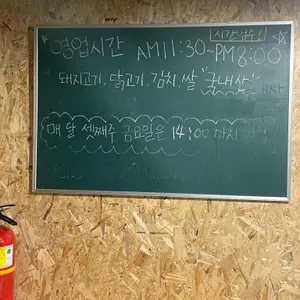 시간엄수!
영업시간 AM11:30~PM8:00
돼지고기, 닭고기, 김치, 쌀 "국내산"
매달 셋째주 금요일은 14:00 까지